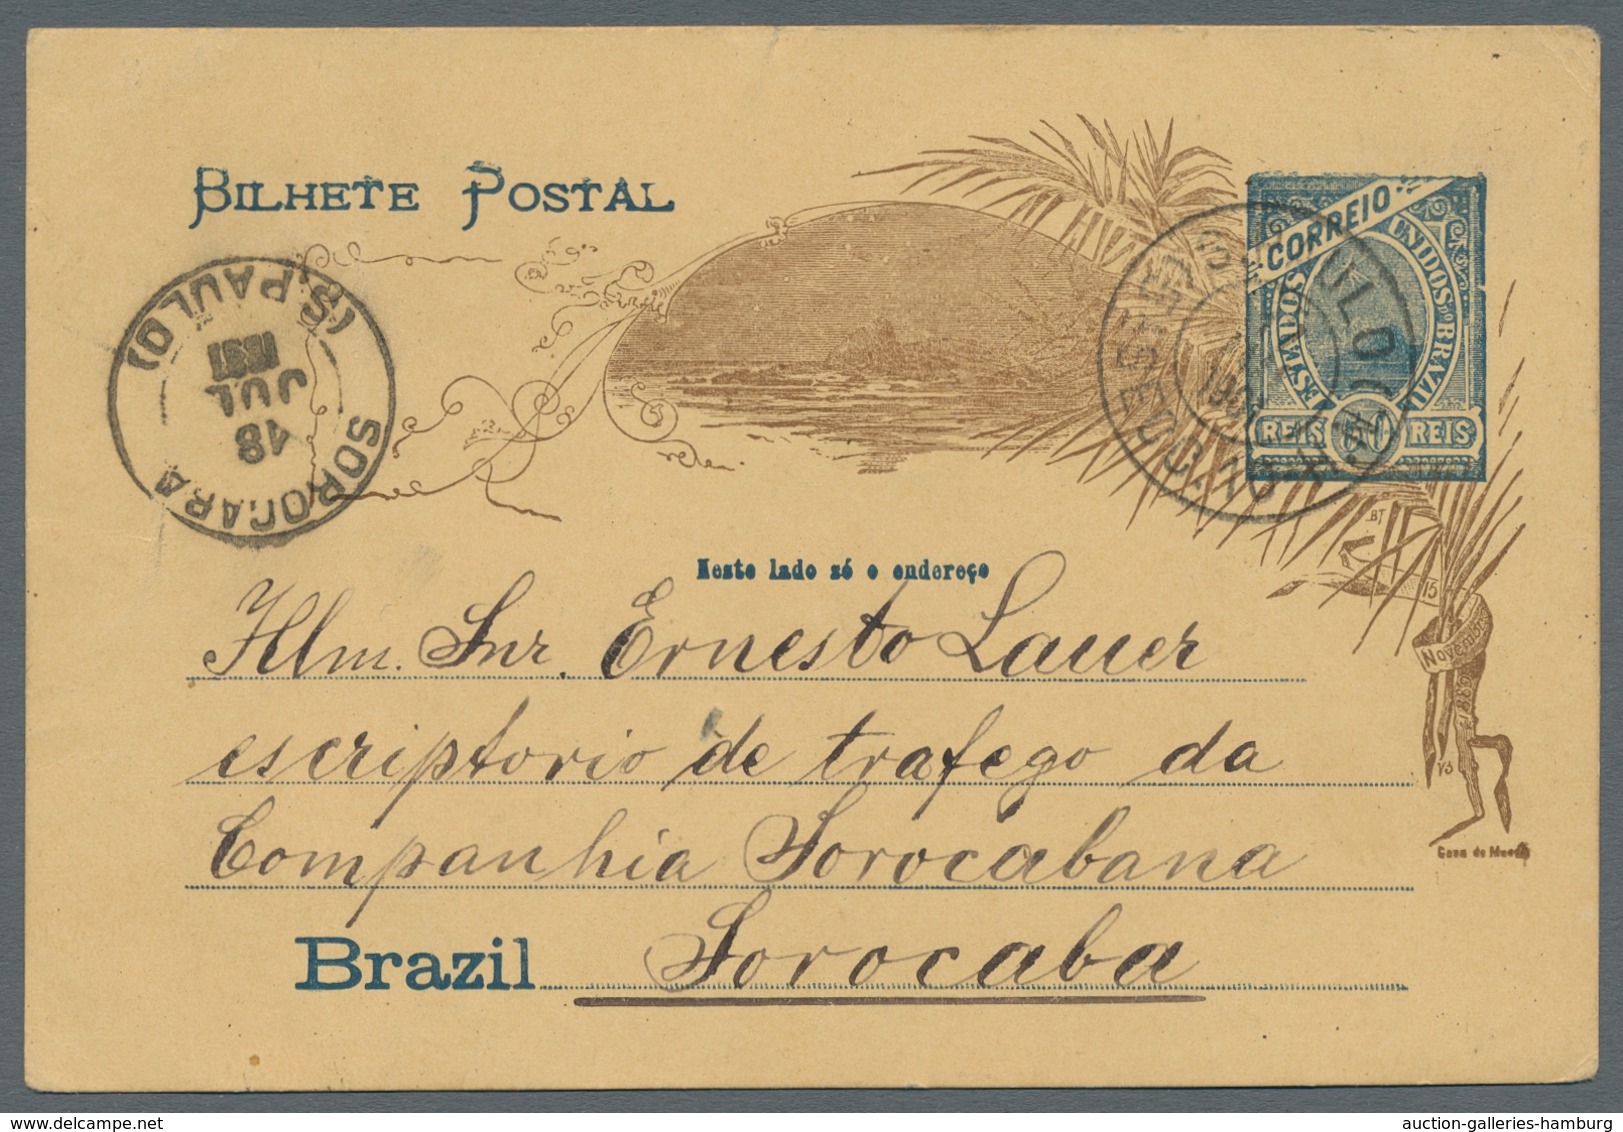 BILHETE POSTAL
CORREIO
ESTADOS UNIDOS DO BRAZIL
REIS 50 REIS
SOROCABA
18
JUL
1897
(S. PAULO)
Neste lado só o endereço
BT
15
Novembro
1889
Casa da Moeda
Illm. Snr. Ernesto Lauer
escriptorio de trafego da
Companhia Sorocabana
Brazil Sorocaba
auction-galleries-hamburg